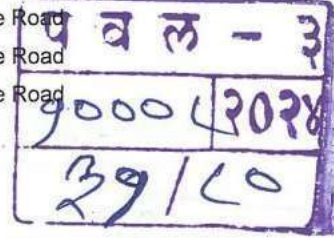 e Road
e Road
e Road
प व ल - ३
१०००८ २०२४
३१/८०